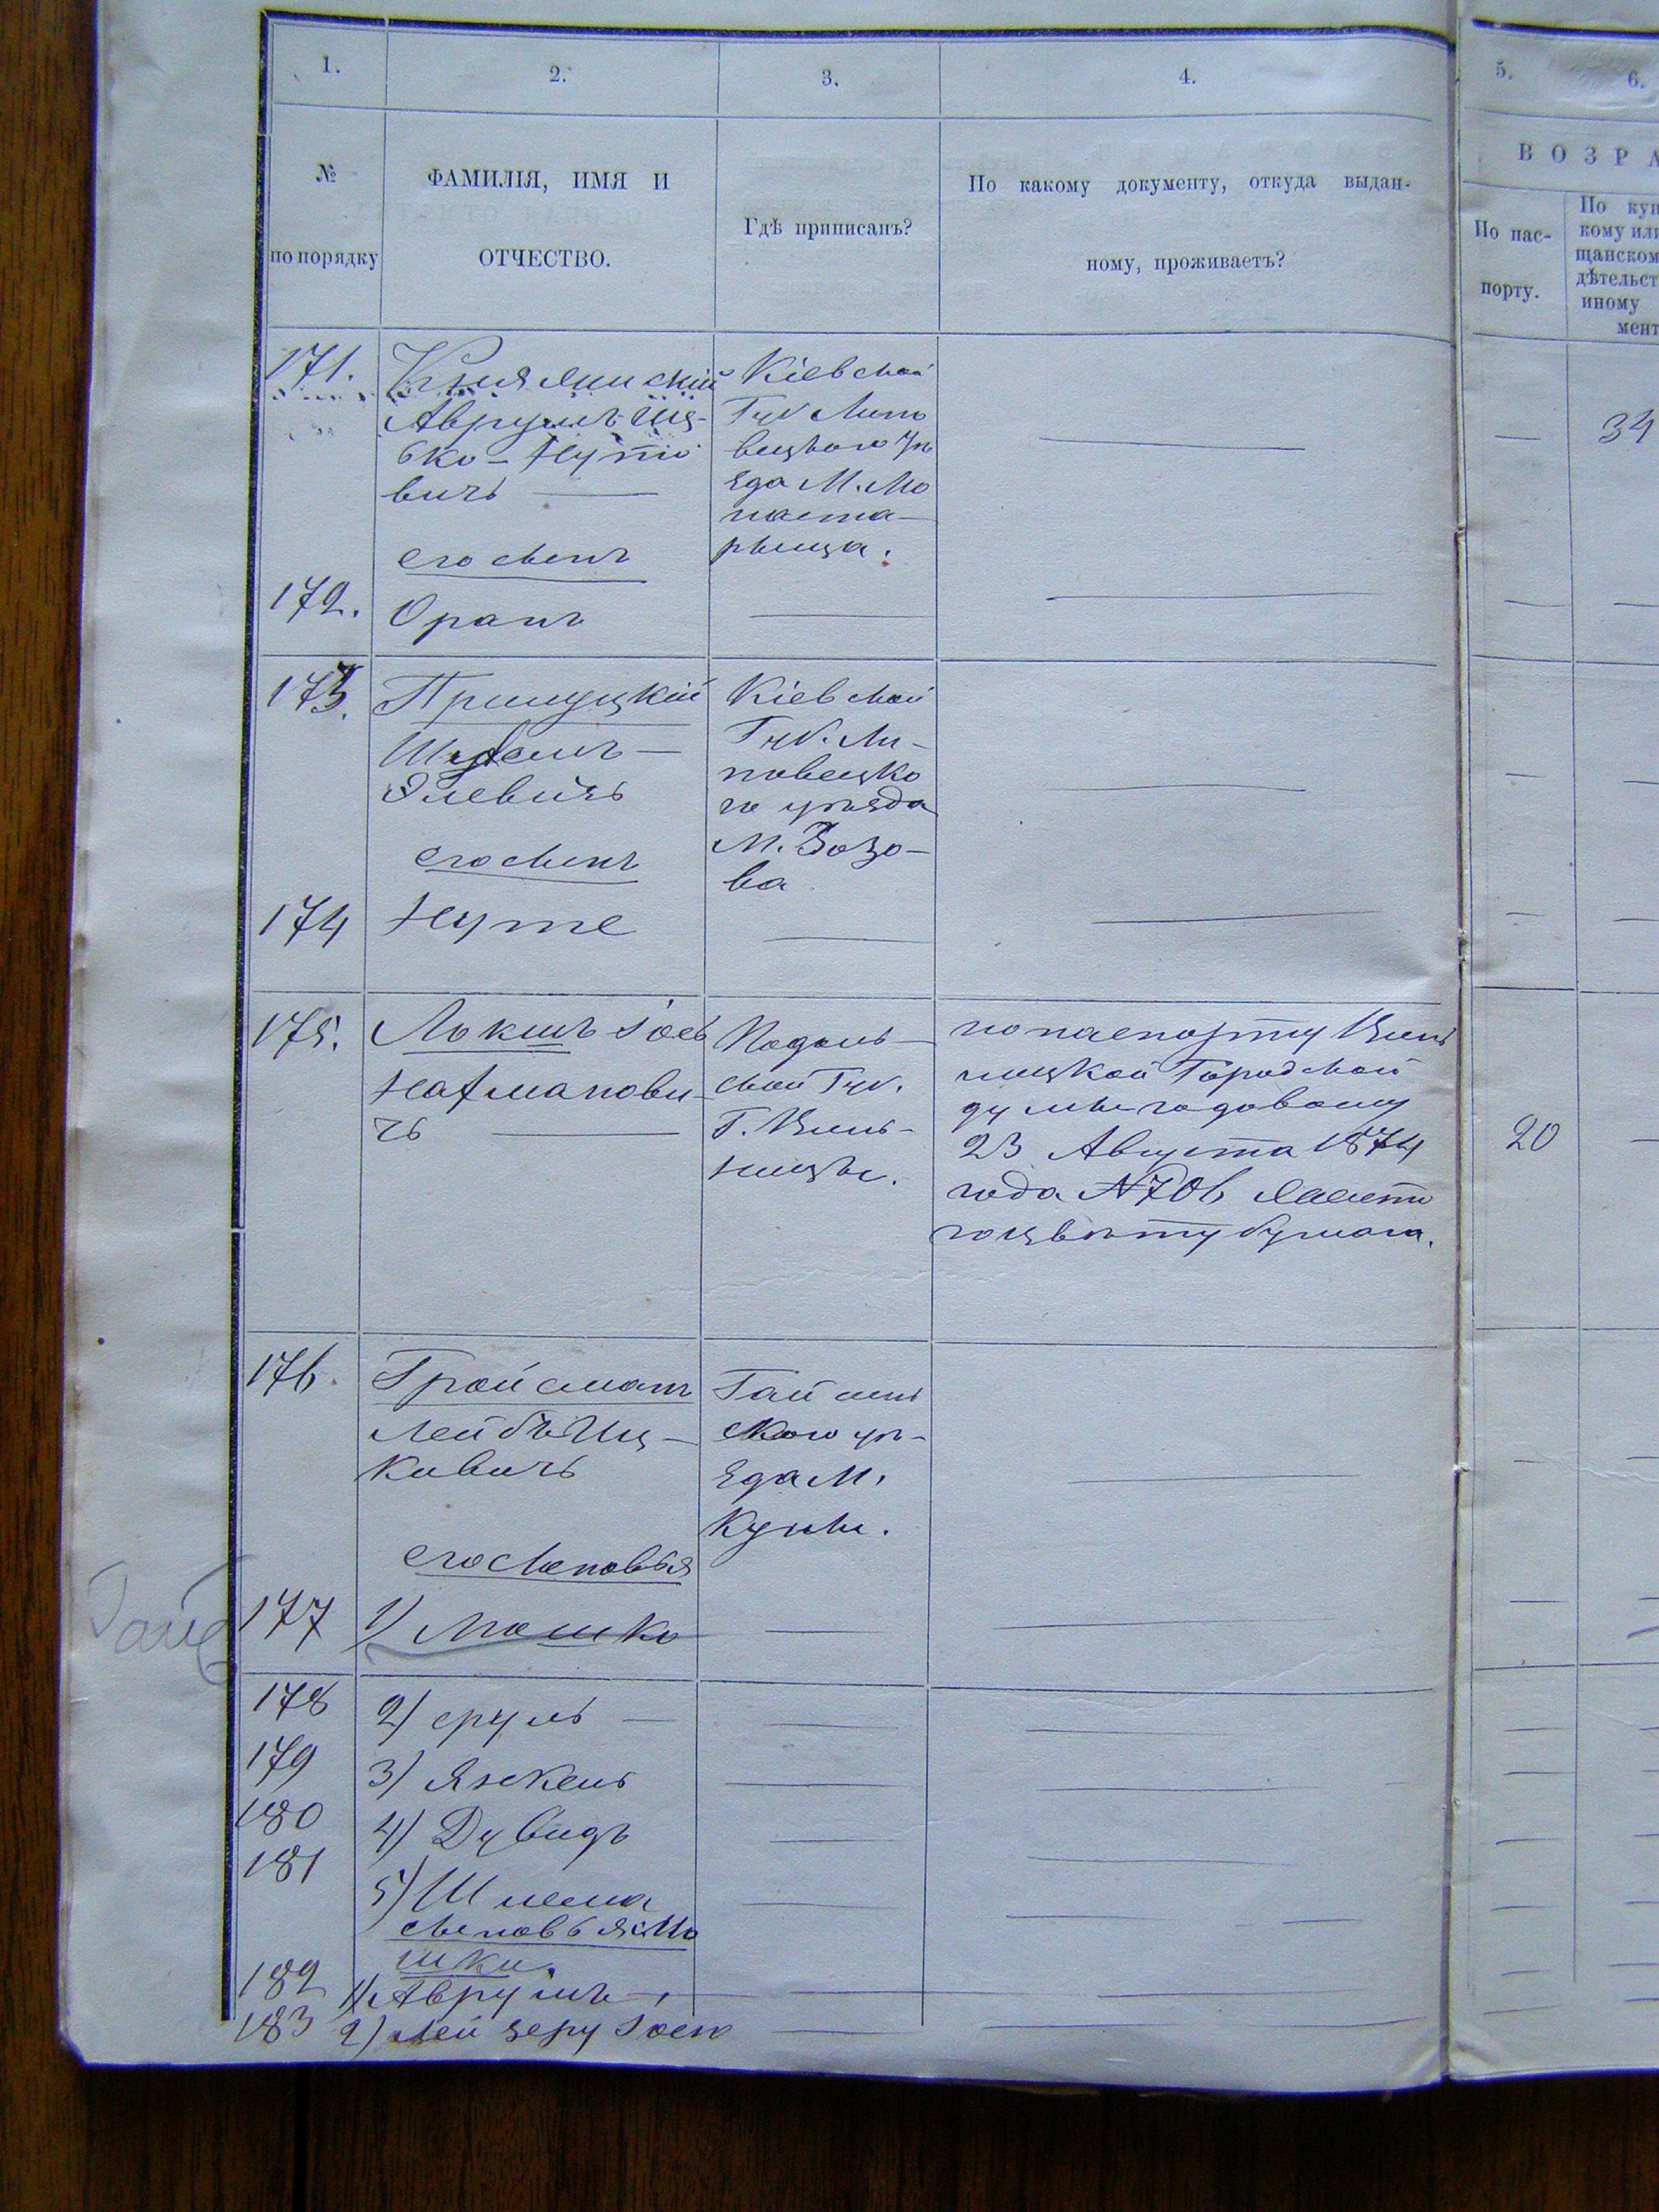 1. 2. 3. 4. 5. 6.
№ по порядку
ФАМИЛІЯ, ИМЯ И
ОТЧЕСТВО.
Гдѣ приписанъ?
По какому документу, откуда выдан-
ному, проживаетъ?
ВОЗРА
По пас-
порту.
По куп
кому или
щанском
дѣтельст
иному
мент
171.
Аврумъ Иц-
ко-Нутӣо
вичъ —
Кіевской
Губ Липо
вецкаго уѣ
зда М. Мо
наста-
рыща.
—
34
его сынъ
172.
Оранъ
— — — —
173.
Прилуцкій
Элевичъ
Кіевской
Губ. Ли-
повецка
го уѣзда
М. Зозо-
ва
— — —
его сынъ
174
Нуте
— — — —
175.
Локшъ Іось
Нахманови-
чъ —
Подоль-
ской Губ.
Г. Винь-
ницы.
по паспорту Винь
ницкой Городской
думы годовому
23 Августа 1874
года №706
цвѣту бумага.
20
—
176.
Гройсманъ
Лейбъ Иц-
ковичъ
Гайсинь
скаго уѣ-
зда М.
Куны.
— — —
его сыновья
177
1) Мошко
— — — —
178
2) сруль —
— — — —
179
3) Янкель
— — — —
180
4) Дувидъ
— — — —
181
5) Шлема
— — — —
сыновья Мо
шки.
182
1) Аврумъ —
— — — —
183
2) Лейзеру Іось
— — —